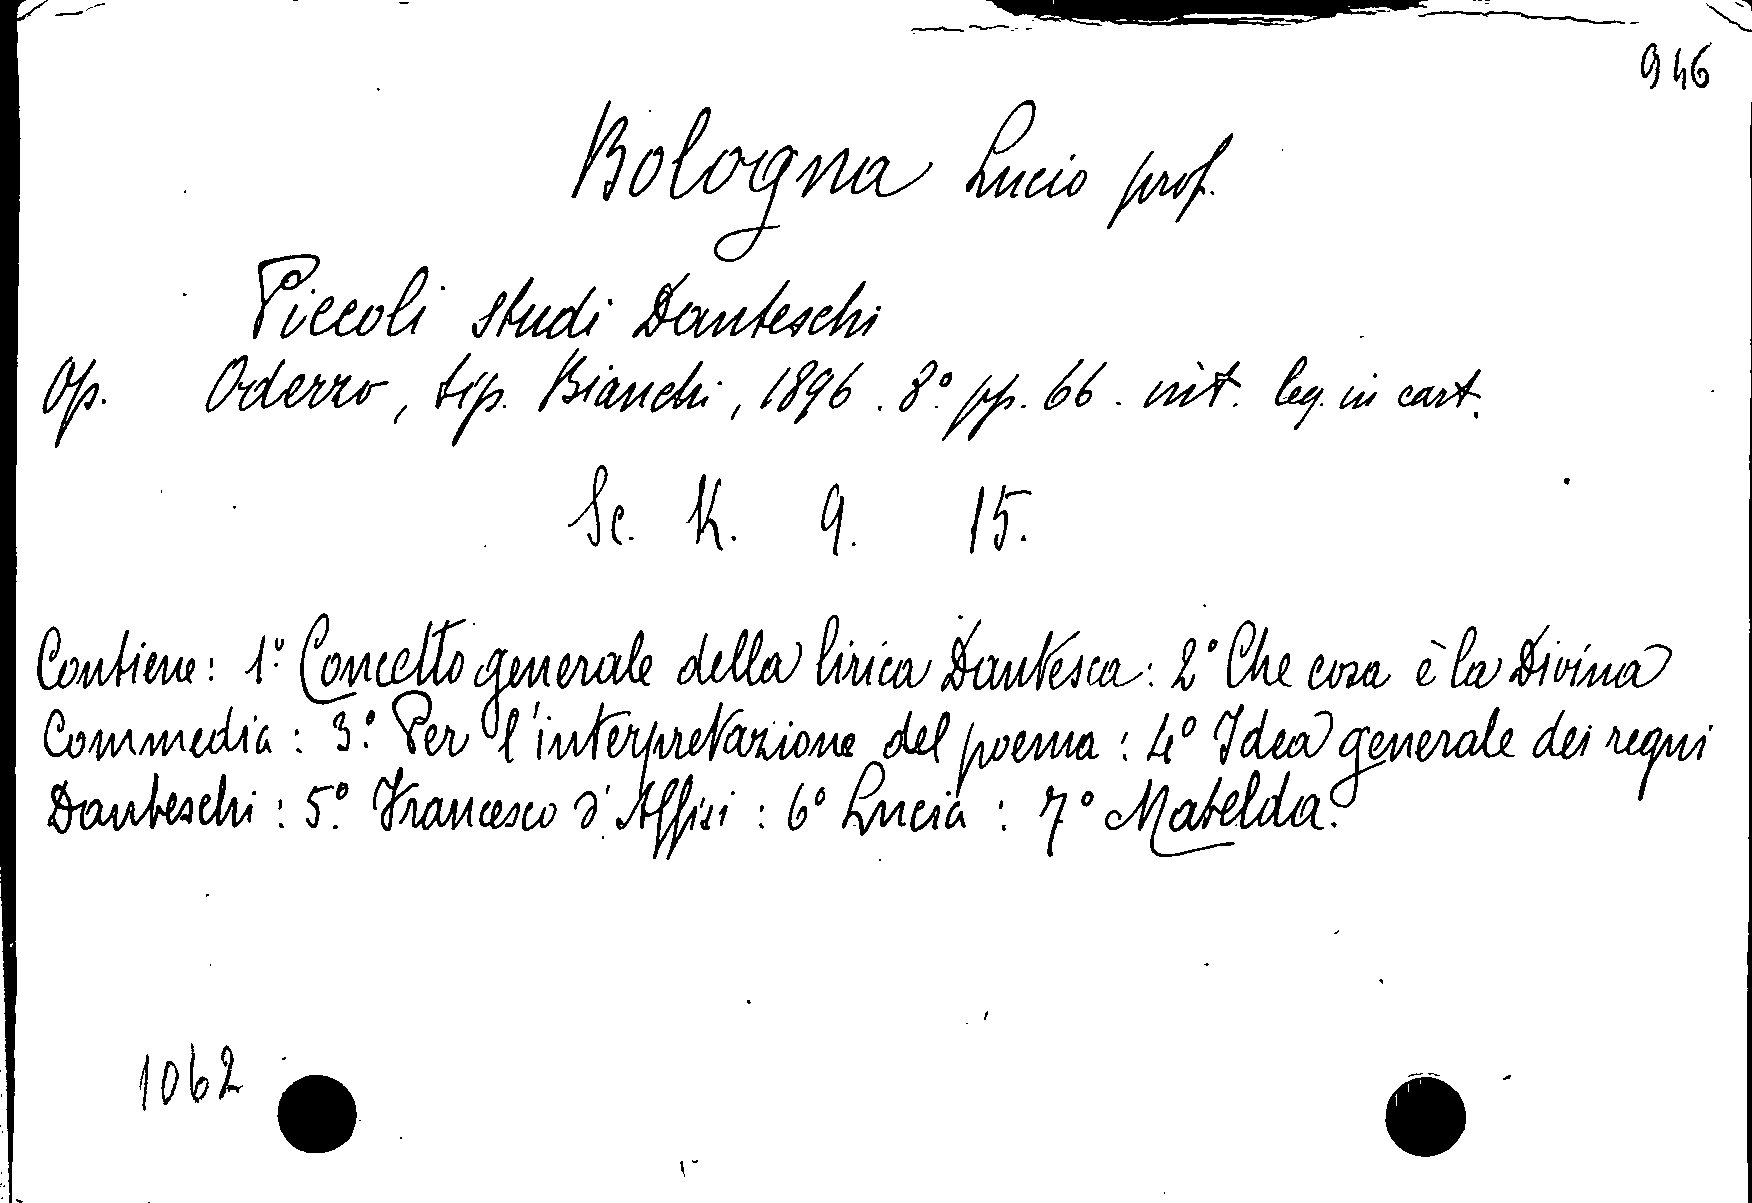 946
Bologna Lucio prof.
Piccoli studi Danteschi
Op. Oderzo, tip. Bianchi, 1896. 8.° pp. 66. int. leg. in cart.
Sc. K. 9. 15.
Contiene: 1.° Concetto generale della lirica Dantesca: 2° Che cosa è la Divina
Commedia: 3.° Per l'interpretazione del poema: 4° Idea generale dei regni
Danteschi: 5.° Francesco d'Assisi: 6° Lucia: 7° Matelda.
1062